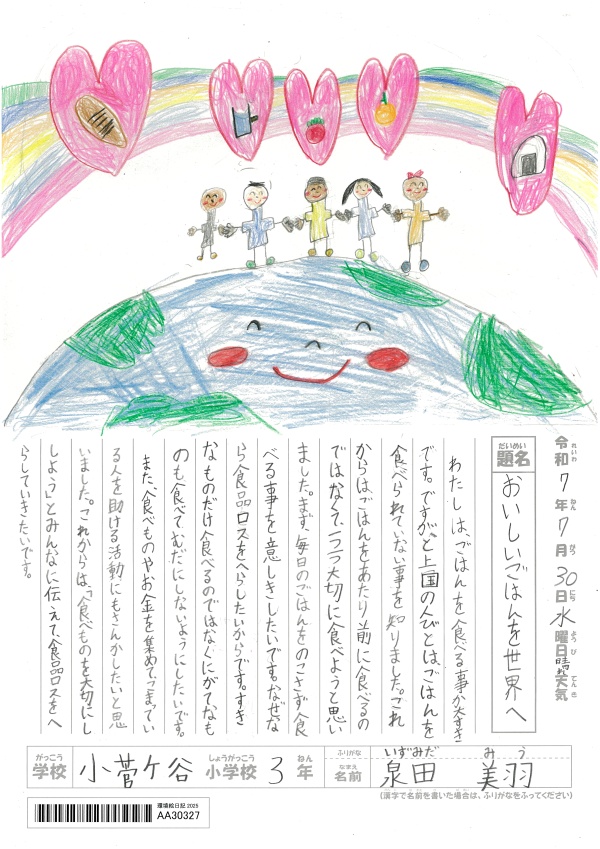 令和7年7月30日水曜日 天気 晴れ
れいわ ねん がつ にち ようび てんき
だいめい
題名
おいしいごはんを世界へ
わたしは、ごはんを食べる事が大すき
です。ですが、と上国の人びとは、ごはんを
食べられていない事を知りました。これ
からは、ごはんをあたり前に食べるの
ではなくて、一つ一つ大切に食べようと思い
ました。まず、毎日のごはんをのこさず食
べる事を意しきしたいです。なぜな
ら食品ロスをへらしたいからです。すき
なものだけ食べるのではなくにがてなも
のも食べてむだにしないようにしたいです。
また、食べものやお金を集めて、こまってい
る人を助ける活動にもさんかしたいと思
いました。これからは、「食べものを大切にし
しよう」とみんなに伝えて、食品ロスをへ
らしていきたいです。
がっこう しょうがっこう ねん ふりがな いずみだ みう
学校 小菅ケ谷 小学校 3年 なまえ 名前 泉田 美羽
(漢字で名前を書いた場合は、ふりがなをふってください)
環境絵日記 2025
AA30327